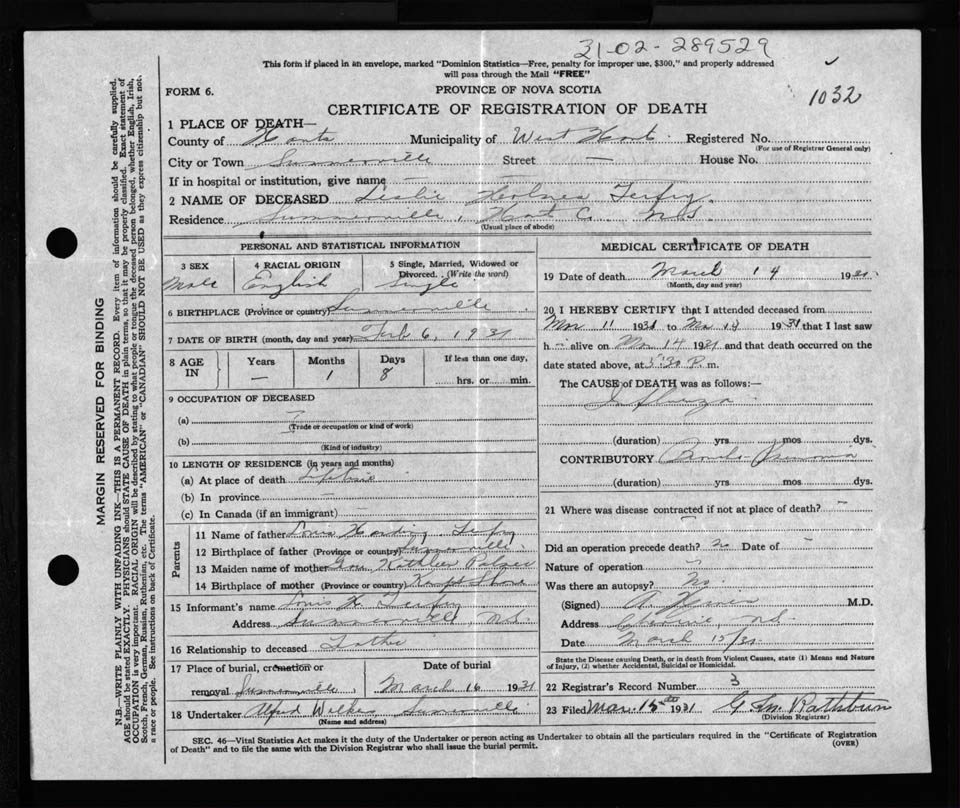 31-02-289529
This form if placed in an envelope, marked "Dominion Statistics—Free, penalty for improper use, $300," and properly addressed
will pass through the Mail "FREE"
1032
FORM 6.
PROVINCE OF NOVA SCOTIA
CERTIFICATE OF REGISTRATION OF DEATH
1 PLACE OF DEATH—
County of Hants Municipality of West Hants Registered No.
(For use of Registrar General only)
City or Town Summerville Street — House No.
If in hospital or institution, give name —
2 NAME OF DECEASED Leslie Holmes
Residence Summerville, Hants Co. N.S.
(Usual place of abode)
PERSONAL AND STATISTICAL INFORMATION
3 SEX Male
4 RACIAL ORIGIN English
5 Single, Married, Widowed or Divorced. (Write the word) Single
6 BIRTHPLACE (Province or country) Summerville
7 DATE OF BIRTH (month, day and year) Feb 6, 1931
8 AGE IN
Years —
Months 1
Days 8
If less than one day,
hrs. or min.
9 OCCUPATION OF DECEASED
(a)
(Trade or occupation or kind of work)
(b)
(Kind of industry)
10 LENGTH OF RESIDENCE (in years and months)
(a) At place of death Lifetime
(b) In province —
(c) In Canada (if an immigrant) —
Parents
11 Name of father Louis Harding
12 Birthplace of father (Province or country) Summerville
13 Maiden name of mother Kathleen Palmer
14 Birthplace of mother (Province or country) Kempt Shore
15 Informant's name Louis H.
Address Summerville, N.S.
16 Relationship to deceased Father
17 Place of burial, cremation or
removal Summerville
Date of burial
March 16 1931
18 Undertaker Alfred Wilkes Summerville
(Name and address)
MEDICAL CERTIFICATE OF DEATH
19 Date of death March 14 1931
(Month, day and year)
20 I HEREBY CERTIFY that I attended deceased from
Mar 11 1931 to Mar 14 1931 that I last saw
h— alive on Mar 14 1931 and that death occurred on the
date stated above, at 5:30 P. m.
The CAUSE of DEATH was as follows:—
Influenza
(duration) yrs mos dys.
CONTRIBUTORY Broncho Pneumonia
(duration) yrs mos dys.
21 Where was disease contracted if not at place of death? —
Did an operation precede death? No Date of —
Nature of operation —
Was there an autopsy? No
(Signed) M.D.
Address N.S.
Date March 15/31
State the Disease causing Death, or in death from Violent Causes, state (1) Means and Nature
of Injury, (2) whether Accidental, Suicidal or Homicidal.
22 Registrar's Record Number 3
23 Filed Mar. 15th 1931 G. Rathburn
(Division Registrar)
SEC. 46—Vital Statistics Act makes it the duty of the Undertaker or person acting as Undertaker to obtain all the particulars required in the "Certificate of Registration
of Death" and to file the same with the Division Registrar who shall issue the burial permit.
(OVER)
MARGIN RESERVED FOR BINDING
N.B.—WRITE PLAINLY WITH UNFADING INK—THIS IS A PERMANENT RECORD. Every item of information should be carefully supplied.
AGE should be stated EXACTLY. PHYSICIANS should STATE CAUSE OF DEATH in plain terms, so that it may be properly classified. Exact statement of
OCCUPATION is very important. RACIAL ORIGIN will be described by stating to what people or tongue the deceased person belonged, whether English, Irish,
Scotch, French, German, Russian, Ruthenian, etc. The terms "AMERICAN" or "CANADIAN" SHOULD NOT BE USED as they express citizenship but not
a race or people. See instructions on back of Certificate.